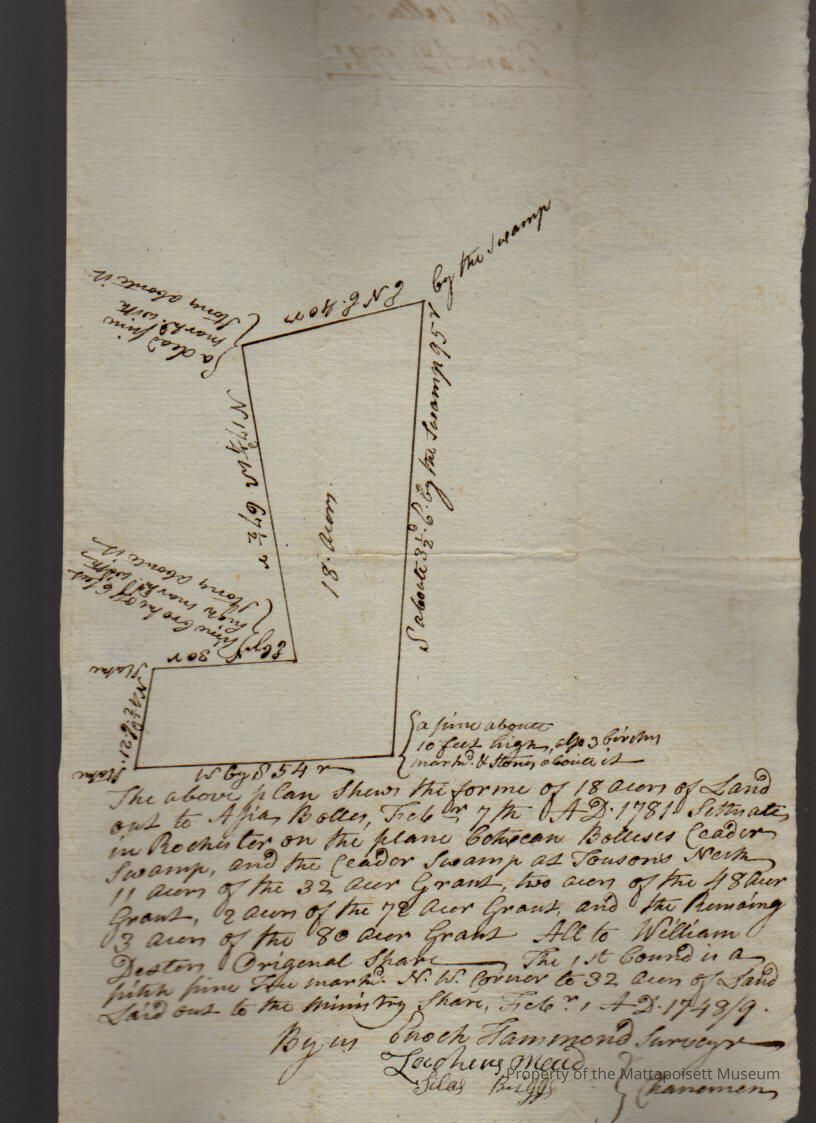 by the Swamp
E N E. 40 r
a dead pine
markd. with
stons aboute it
N 19¾ W 67½ r
18. Acers.
S aboute 3½d. E. by the Swamp 95 r
pine broke of
high markd with
stons aboute it
30 r
Stake
Stake
W by S 54 r
a pine aboute
10 feet high, also 3 birches
markd. & stones aboute it
The above plan Shews the forme of 18 acers of Land
out to Asia Bolles, Febr 7th A D. 1781 Settuate
in Rochester on the plane betwean Bolleses Ceader
Swamp, and the Ceader Swamp at Tousons Neck
11 acers of the 32 acer Grant, two acers of the 48 acer
Grant, 2 acers of the 72 acer Grant, and the Remaing
3 acers of the 80 acer Grant All to William
Dexters Origenal Share The 1st bound is a
pitch pine Tree markd. N. W. Corner to 32 acers of Land
Laid out to the Ministry Share, Febr. 1 A D. 1748/9.
By us Enoch Hammond Surveyr
Mead
Silas Briggs
Chanemen
Property of the Mattapoisett Museum